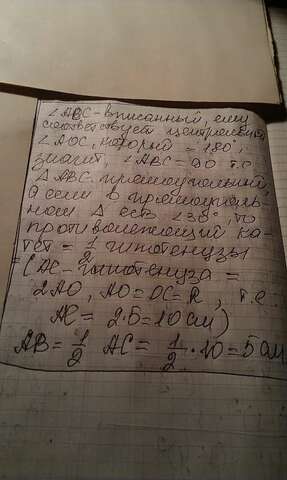 ∠ABC - вписанный, ему
соответствует центральный
∠AOC, который = 180°,
значит, ∠ABC = 90 т.е.
Δ ABC прямоугольный,
а если в прямоуголь-
ном Δ есть ∠30°, то
противолежащий ка-
тет = 1/2 гипотенузы
(AC - гипотенуза =
2AO, AO = OC = R, т.е.
AC = 2·5 = 10 см)
AB = 1/2 AC = 1/2 · 10 = 5 см